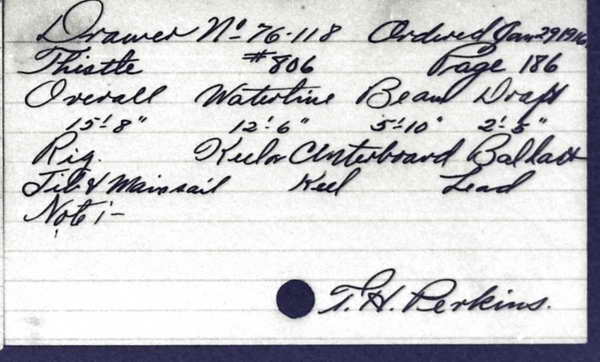 Drawer No. 76-118 Ordered Jan 29 1916
Thistle #806 Page 186
Overall Waterline Beam Draft
15'-8" 12'-6" 5'-10" 2'-5"
Rig. Keel or Centerboard Ballast
Jib & Mainsail Keel Lead
Note:-
T. H. Perkins.